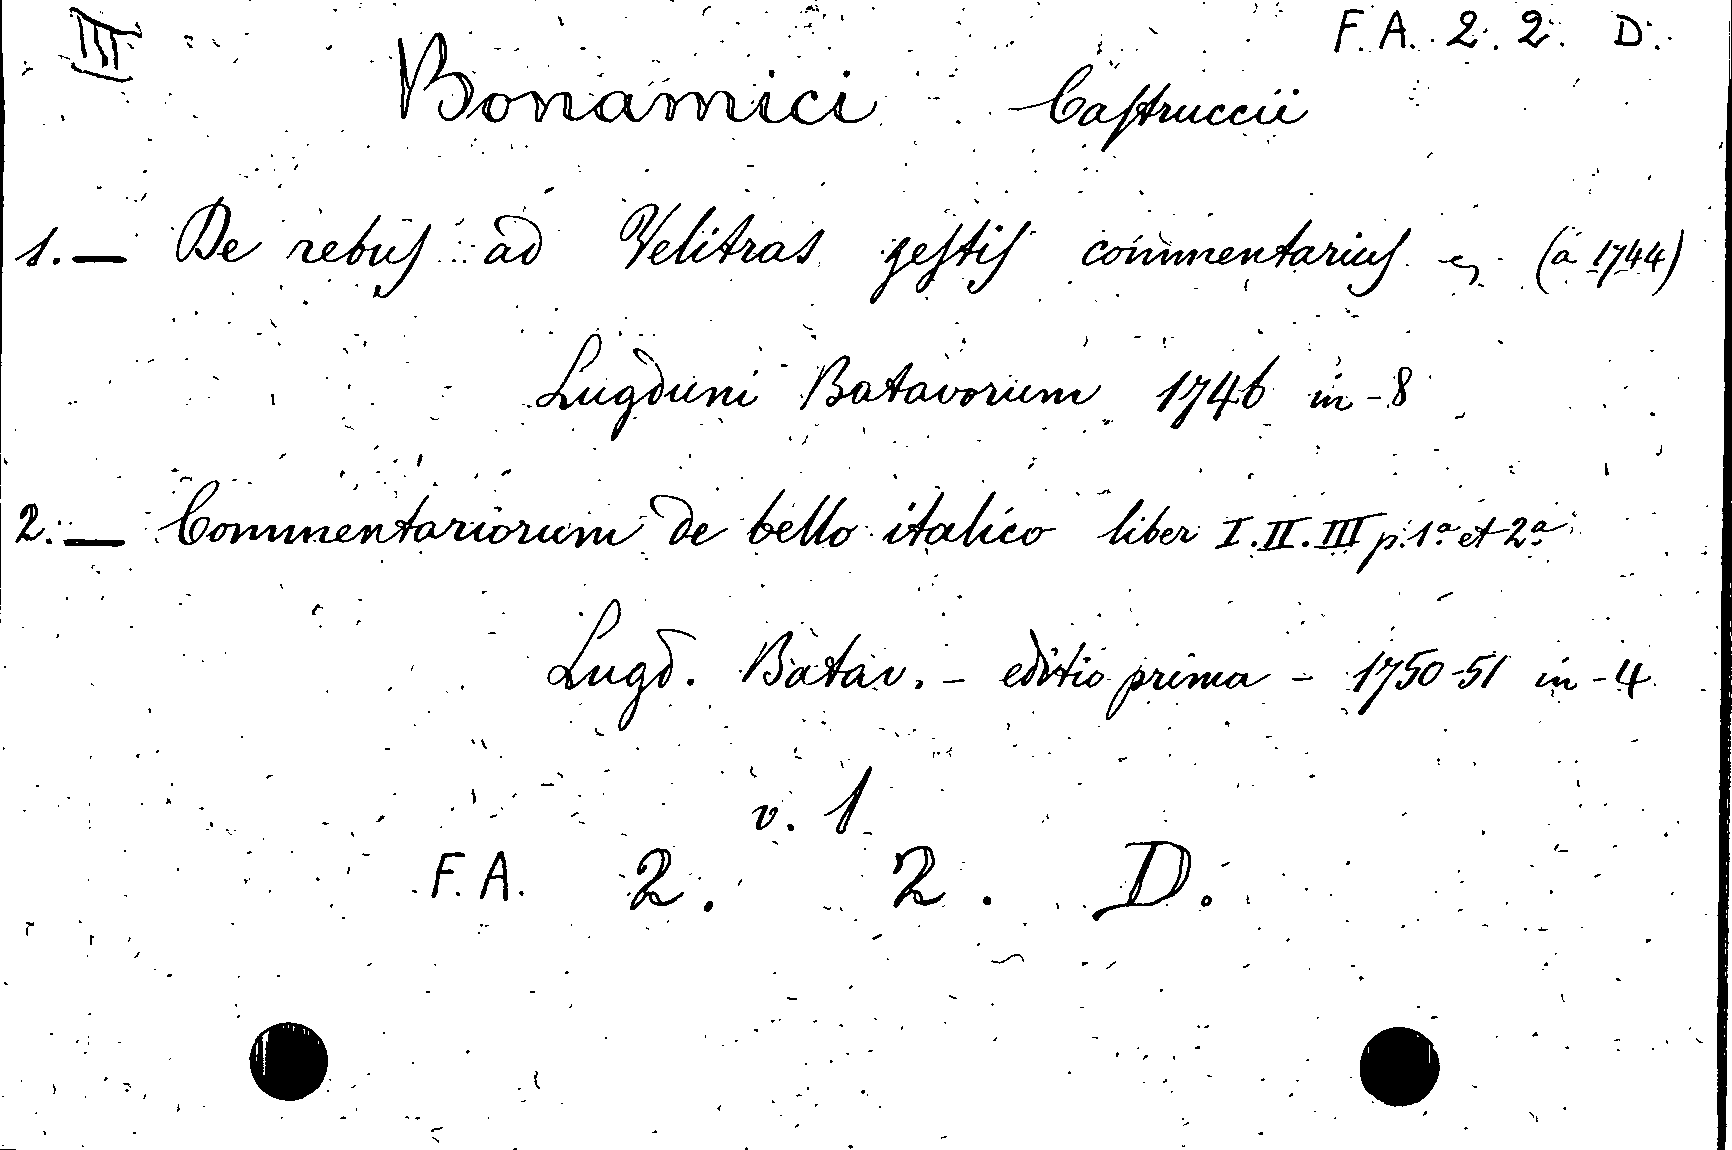 III F. A. 2. 2. D.
Bonamici Castruccii
1. — De rebus ad Velitras gestis commentarius (a 1744)
Lugduni Batavorum 1746 in-8
2. — Commentariorum de bello italico liber I. II. III p. 1ª et 2ª
Lugd. Batav. - editio prima - 1750-51 in-4
v. 1
F. A. 2. 2. D.